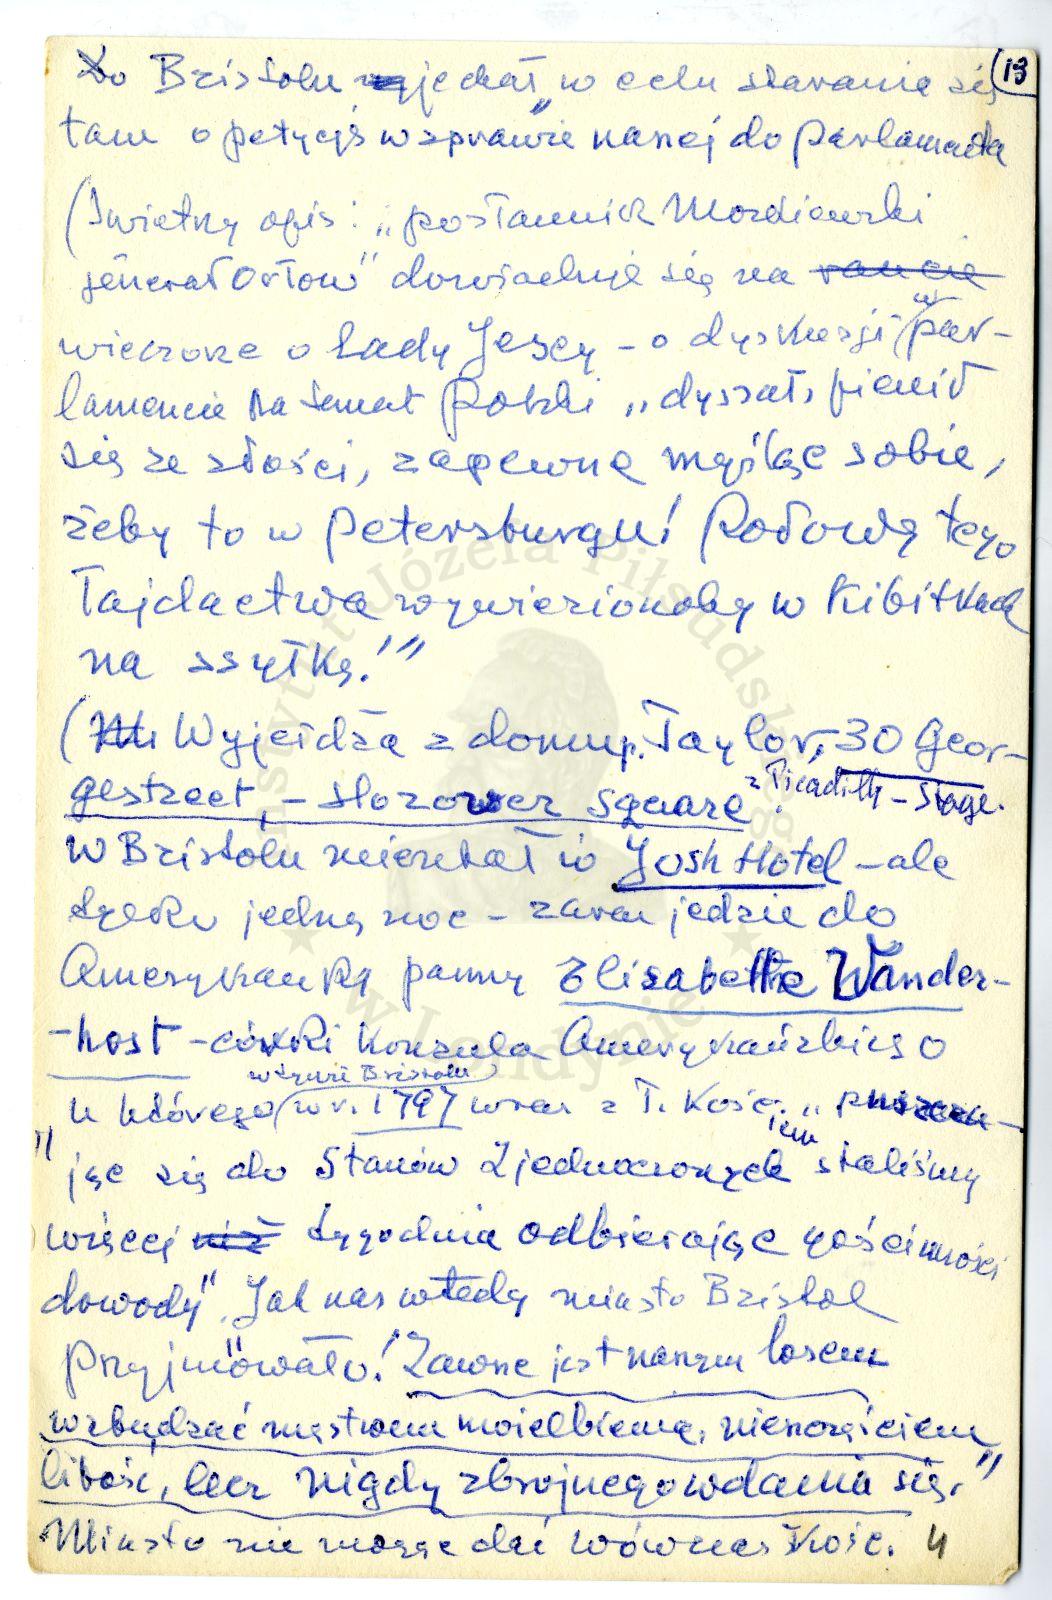 13
Do Bristolu wyjechał „w celu starania się
tam o petycję w sprawie naszej do Parlamentu
(Świetny opis: „posłannik Moskiewski
generał Orłow" dowiaduje się na raucie
wieczorze o Lady Jesey – o dyskusji w par-
lamencie na temat Polski „dyszał, pienił
się ze złości, zapewne myśląc sobie,
żeby to w Petersburgu! Połowę tego
łajdactwa wywiezionoby w Kibitkach
na ssyłkę!"
(Wyjeżdża z domu p. Taylor, 30 Geor-
gestreet, – Hozower Square z Picadilly – Stage.
W Bristolu mieszkał w Josh Hotel – ale
tylko jedną noc – zaraz jedzie do
Amerykanki panny Elisabethe Wander-
-host – córki Konzula Amerykańskiego
w tymże Bristolu
u którego (w r. 1797 wraz z T. Kość. „puszcza-
iem
„jąc się do Stanów Zjednoczonych staliśmy
więcej niż tygodnia odbierając gościnności
dowody". Jak nas wtedy miasto Bristol
przyjmowało! Zawsze jest naszym losem
wzbudzać męstwem uwielbienie, nieszczęściem
litość, lecz nigdy zbrojnego wdania się."
Miasto nie mogąc dać wówczas Kość. 4
Instytut Józefa Piłsudskiego
w Londynie